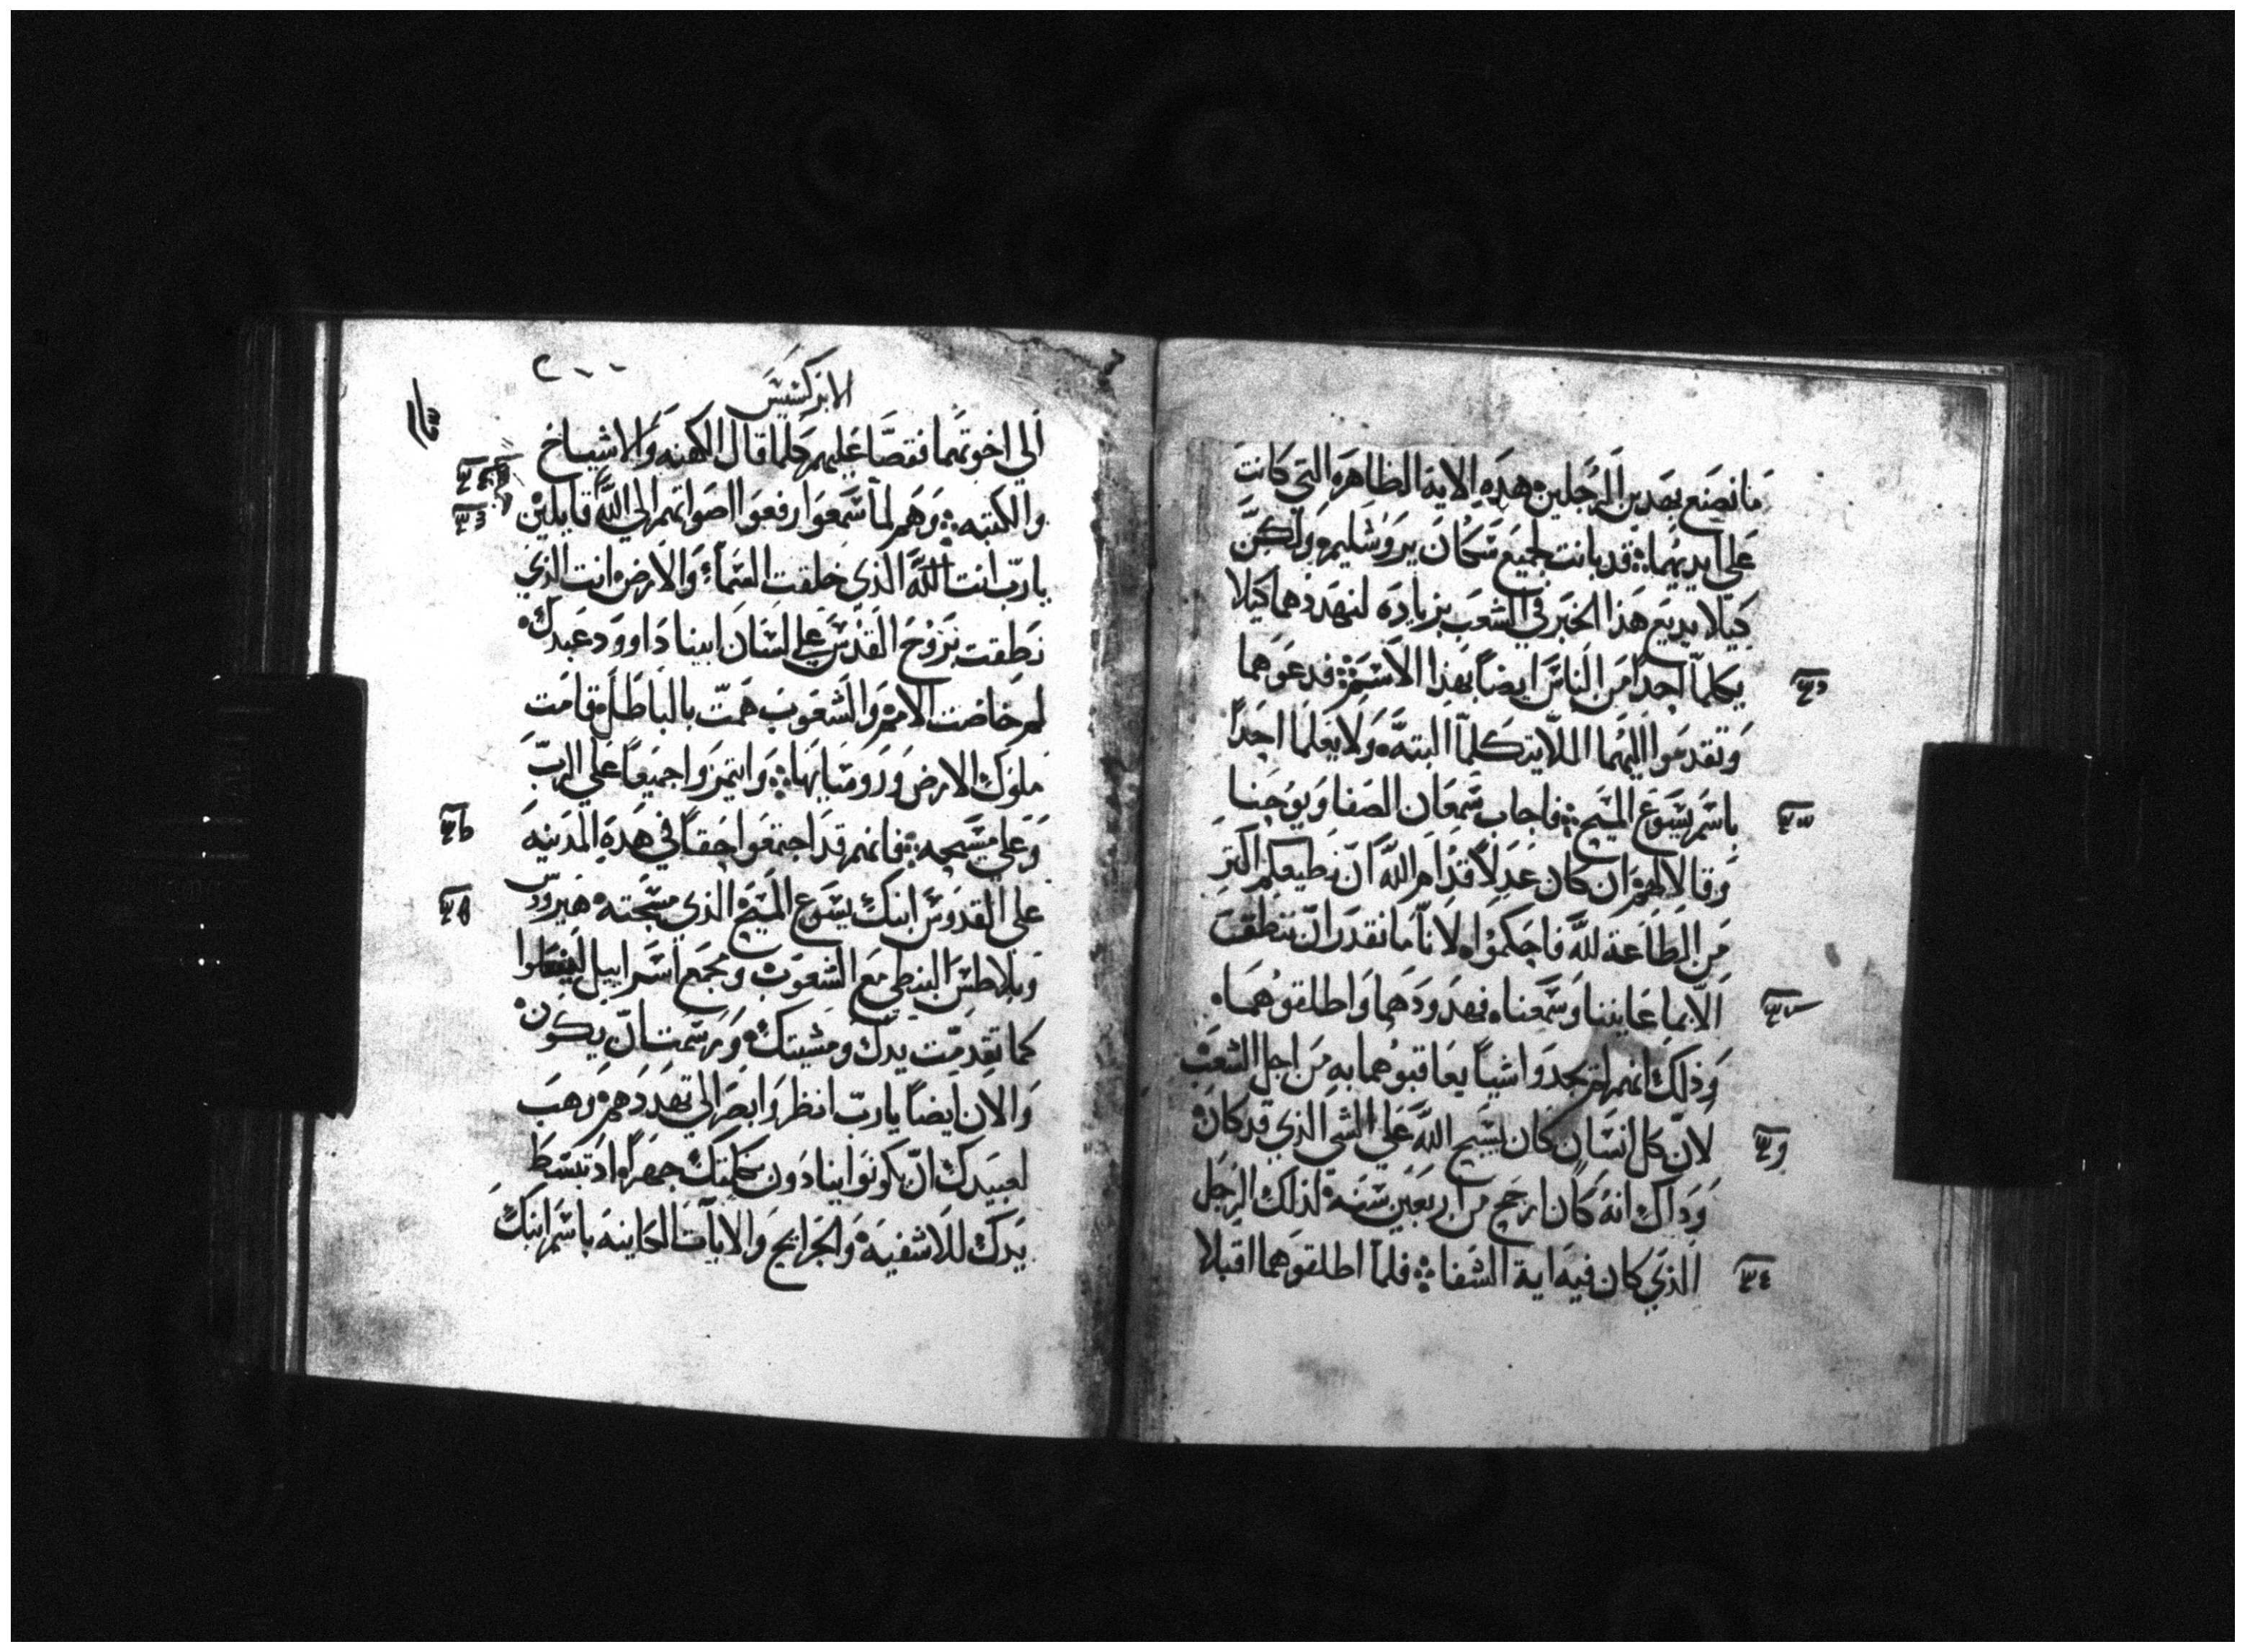 ما نصنع بهدين الرجلين هده الاية الظاهره التي كانت
على ايديهما قد بانت لجميع سكان يروشليم ولكن
كيلا يديع هذا الخبر في الشعب بزياده لنهددهما كيلا
يكلما احدا من الناس ايضا بهذا الاسم فدعوهما
وتقدموا اليهما اللا يتكلما البته ولا يعلما احدا
باسم يسوع المسيح فاجاب شمعان الصفا ويوحنا
وقالا لهم ان كان عدلا قدام الله ان نطيعكم اكتر
من الطاعة لله فاحكموا لانا ما نقدر ان ننطق
الا بما عاينا وسمعناه فهددوهما واطلقوهما
وذلك انهم لم يجدوا شيا يعاقبوهما به من اجل الشعب
لان كل انسان كان يسبح الله على الشي الذي قد كان
وداك انه كان ارجح من اربعين سنة لذلك الرجل
الذي كان فيه اية الشفا فلما اطلقوهما اقبلا
الابركسيس
الي اخوتهما فقصا عليهم كلما قال الكهنه والاشياخ
والكتبه وهم لما سمعوا رفعوا اصواتهم الي الله قايلين
يا رب انت الله الذي خلقت السماء والارض انت الذي
نطقت بروح القدس علي لسان ابينا داوود عبدك
لم خاضت الامم والشعوب همت بالباطل قامت
ملوك الارض وروسايها وايتمروا جميعا علي الرب
وعلي مسيحه فانهم قد اجتمعوا حقا في هده المدينه
علي القدوس ابنك يسوع المسيح الذي مسحته هيرودس
وبلاطس البنطي مع الشعوب ومجمع اسراييل ليفعلوا
كما تقدمت يدك ومشيتك ورسمت ان يكون
والان ايضا يا رب انظر وابصر الي تهددهم وهب
لعبيدك ان يكونوا ينادون بكلمتك جهرا اد تبسط
يدك للاشفيه والجرايح والايات الكاينه باسم ابنك